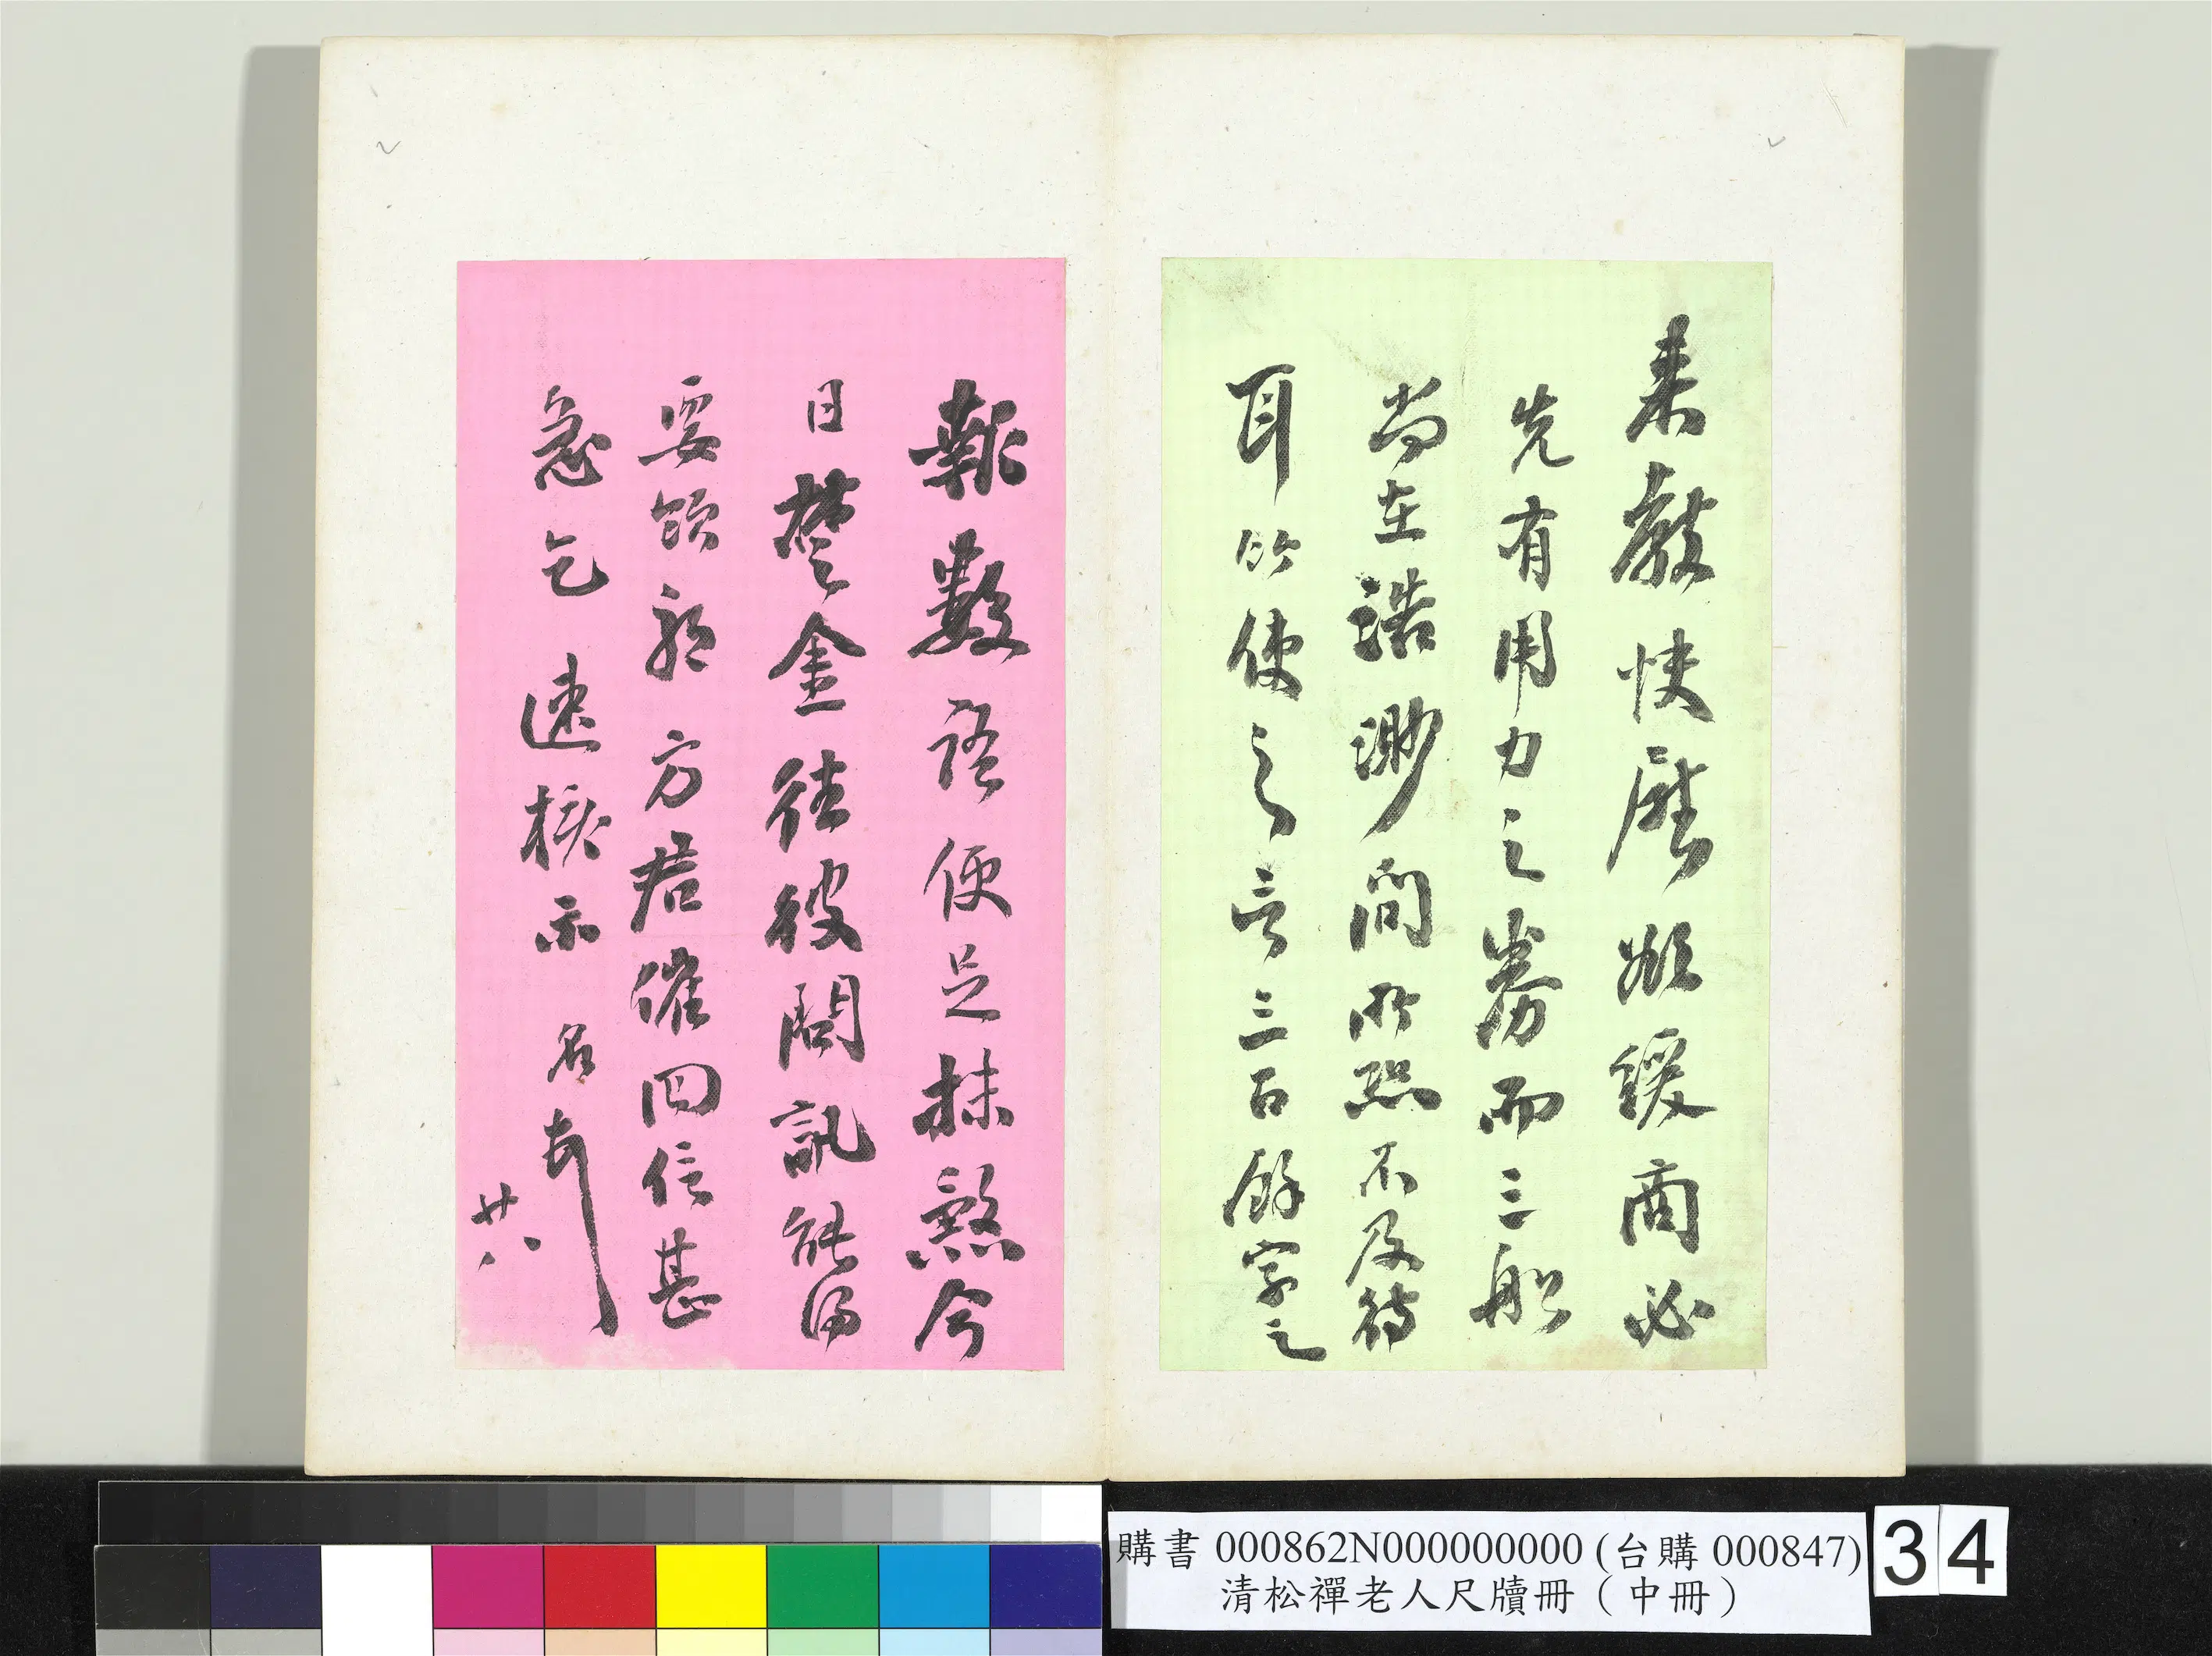 来教快慰緩商必
先有用力之務而三船
尚在浩渺間所恐不及待
耳以使之言三百餘字之
報數語便足抹煞今
日楚金往彼問訊能得
要領耶方君催回信甚
急乞速核示 名頓
廿八
購書 000862N000000000 (台購 000847)
清松禪老人尺牘冊（中冊）
34